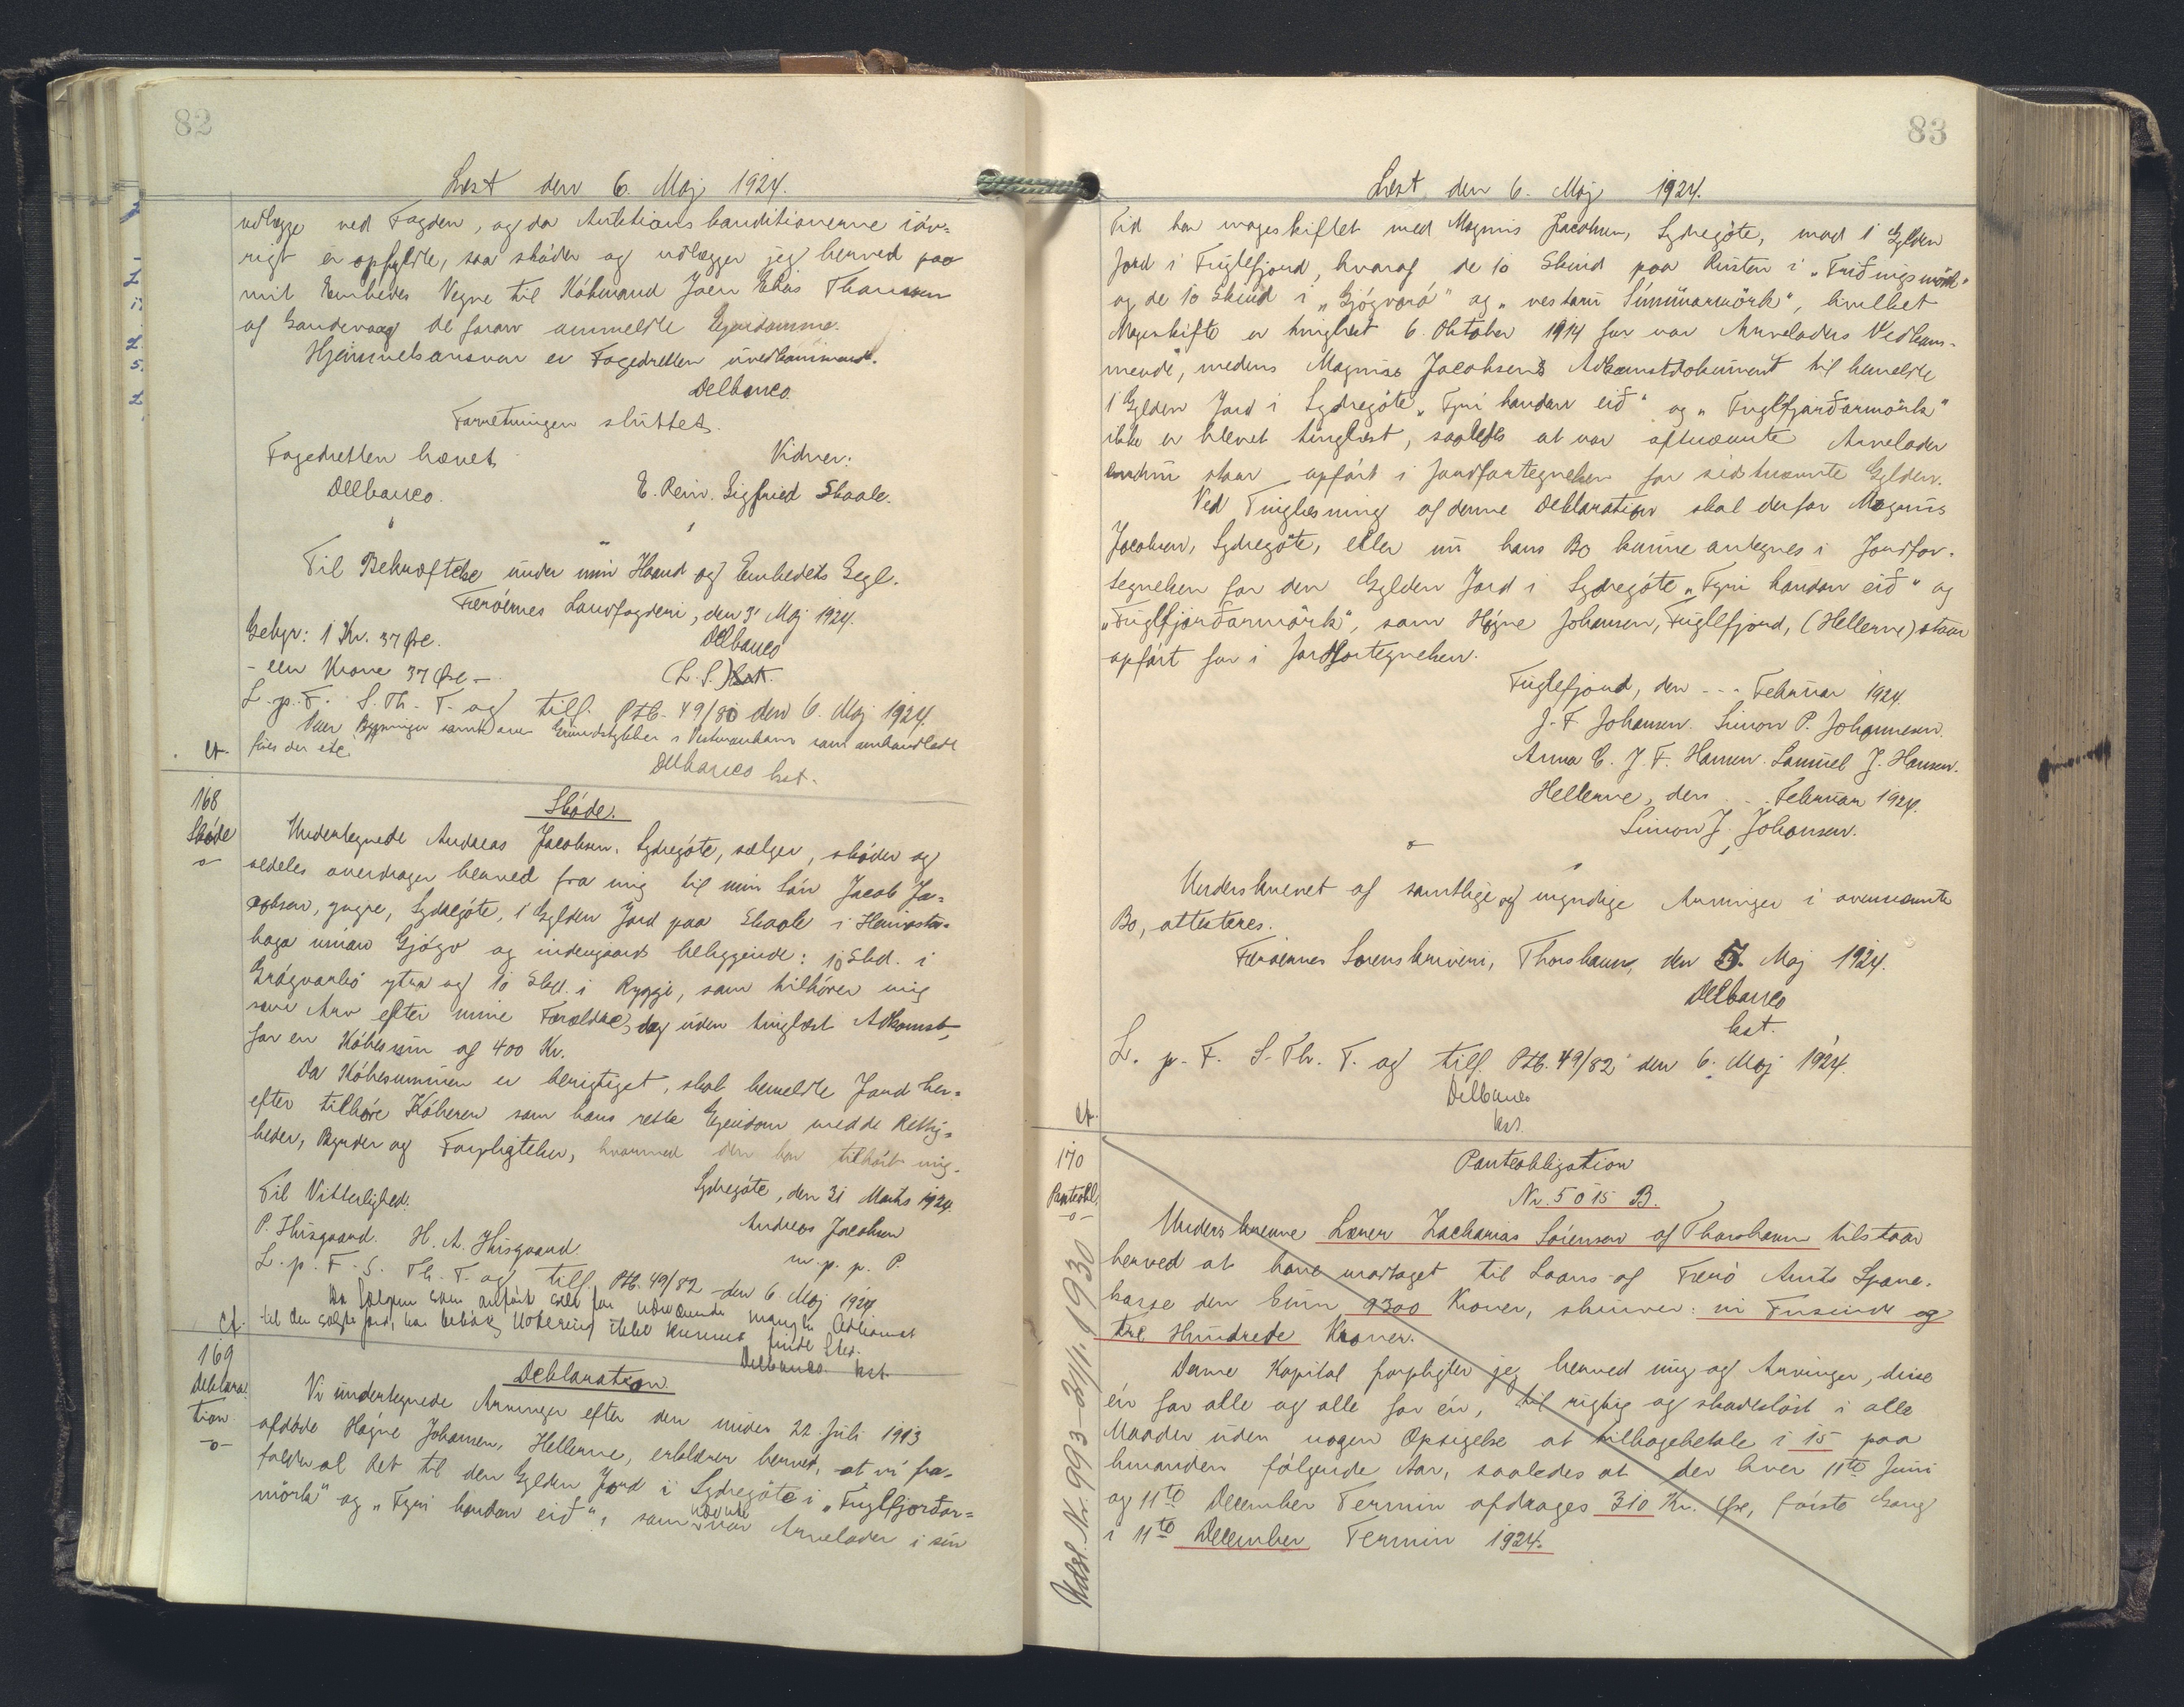 82
Læst den 6. Maj 1924.
udlægge ved Fogden, og da Auktionskonditionerne iöv-
rigt er opfyldte, saa skøder og udlægger jeg herved paa
mit Embedes Vegne til Købmand Joen Elias Thomsen
af Sandevaag de foran anmeldte Ejendomme.
Hjemmelsansvar er Fogedretten uvedkommende.
Delbanco.
Forretningen sluttet.
Fogedretten hævet.
Vidner:
Delbanco.
E. Rein. Sigfried Skaale.
Til Bekræftelse under min Haand og Embedets Segl.
Færöernes Landfogderi, den 3' Maj 1924.
Gebyr: 1 Kr. 37 Øre.
Delbanco
- een Krone 37 Øre -
(L.S.) kst.
L. p. F. S. Th. T. og tilf. Ptb. 49/80 den 6. Maj 1924.
Bygninger samt Grundstykker i Vestmanhavn som omhandlede
Delbanco kst.
cf.
168
Skøde
Skøde.
Undertegnede Andreas Jacobsen, Sydregöte, sælger, skøder og
aldeles overdrager herved fra mig til min Sön Jacob Ja-
cobsen, yngre, Sydregöte, 1 Gylden Jord paa Skaale i Heimasta-
haga innan Gjógv og indengaards beliggende: 10 Skd. i
Grógvarbö ytra og 10 Skd. i Ryggi, som tilhører mig
som Arv efter mine Forældre, dog uden tinglæst Adkomst,
for en Købesum af 400 Kr.
Da Købesummen er berigtiget, skal bemeldte Jord her-
efter tilhøre Køberen som hans rette Ejendom med de Rettig-
heder, Byrder og Forpligtelser, hvormed den har tilhört mig.
Sydregöte, den 31 Marts 1924.
Til Vitterlighed:
Andreas Jacobsen
P. Husgaard. H. A. Husgaard.
m. p. p. P.
L. p. F. S. Th. T. og tilf. Ptb. 49/82 den 6. Maj 1924
Da Sælgeren som anført selv mangler Adkomst
til den solgte Jord, har Notering ikke kunnet finde Sted.
Delbanco. kst.
cf.
169
Deklara
tion
Deklaration.
Vi undertegnede Arvinger efter den under 22. Juli 1913
afdøde Högne Johansen, Hellerne, erklærer herved, at vi fra-
falder al Ret til den Gylden Jord i Sydregöte i "Fuglfjorðar-
mörk" og "Fyri handan eið", som nævnte vor Arvelader i sin
83
Læst den 6. Maj 1924.
Tid har mageskiftet med Magnus Jacobsen, Sydregöte, mod 1 Gylden
Jord i Fuglefjord, hvoraf de 10 Skind paa Rusten i "Friðingsmörk"
og de 10 Skind i "Gjógvará" og "vestaru Simunarmörk", hvilket
Mageskifte er tinglæst 6. Oktober 1914 for vor Arveladers Vedkom-
mende, medens Magnus Jacobsens Adkomstdokument til bemeldte
1 Gylden Jord i Sydregöte "Fyri handan eið" og "Fuglfjarðarmörk"
ikke er blevet tinglæst, saaledes at vor afnævnte Arvelader
endnu staar opført i Jordfortegnelsen for sidstnævnte Gylden.
Ved Tinglæsning af denne Deklaration skal derfor Magnus
Jacobsen, Sydregöte, eller nu hans Bo kunne antegnes i Jordfor-
tegnelsen for den Gylden Jord i Sydregöte "Fyri handan eið" og
"Fuglfjarðarmörk", som Högne Johansen, Fuglefjord, (Hellerne) staar
opført for i Jordfortegnelsen.
Fuglefjord, den - - - Februar 1924.
J. F. Johansen. Simon P. Johannesen.
Anna E. J. F. Hansen. Samuel J. Hansen.
Hellerne, den . . . Februar 1924.
Simon J. Johansen.
Underskrevet af samtlige og myndige Arvinger i ovennævnte
Bo, attesteres.
Færöernes Sorenskriveri, Thorshavn, den 5. Maj 1924.
Delbanco
kst.
L. p. F. S. Th. T. og tilf. Ptb. 49/82 den 6. Maj 1924.
Delbanco
kst.
cf.
170
Panteobl.
Panteobligation
Nr. 5015 B.
Underskrevne Lærer Zacharias Sörensen af Thorshavn tilstaar
herved at have modtaget til Laans af Færö Amts Spare-
kasse den Sum 9300 Kroner, skriver: ni Tusinde og
tre Hundrede Kroner.
Denne Kapital forpligter jeg herved mig og Arvinger, disse
én for alle og alle for én, til rigtig og skadeslöst i alle
Maader uden nogen Opsigelse at tilbagebetale i 15 paa
hinanden følgende Aar, saaledes at der hver 11te Juni
og 11te December Termin afdrages 310 Kr. Øre, første Gang
i 11te December Termin 1924.
Udsl. Nr. 993 - 31/1. 1930